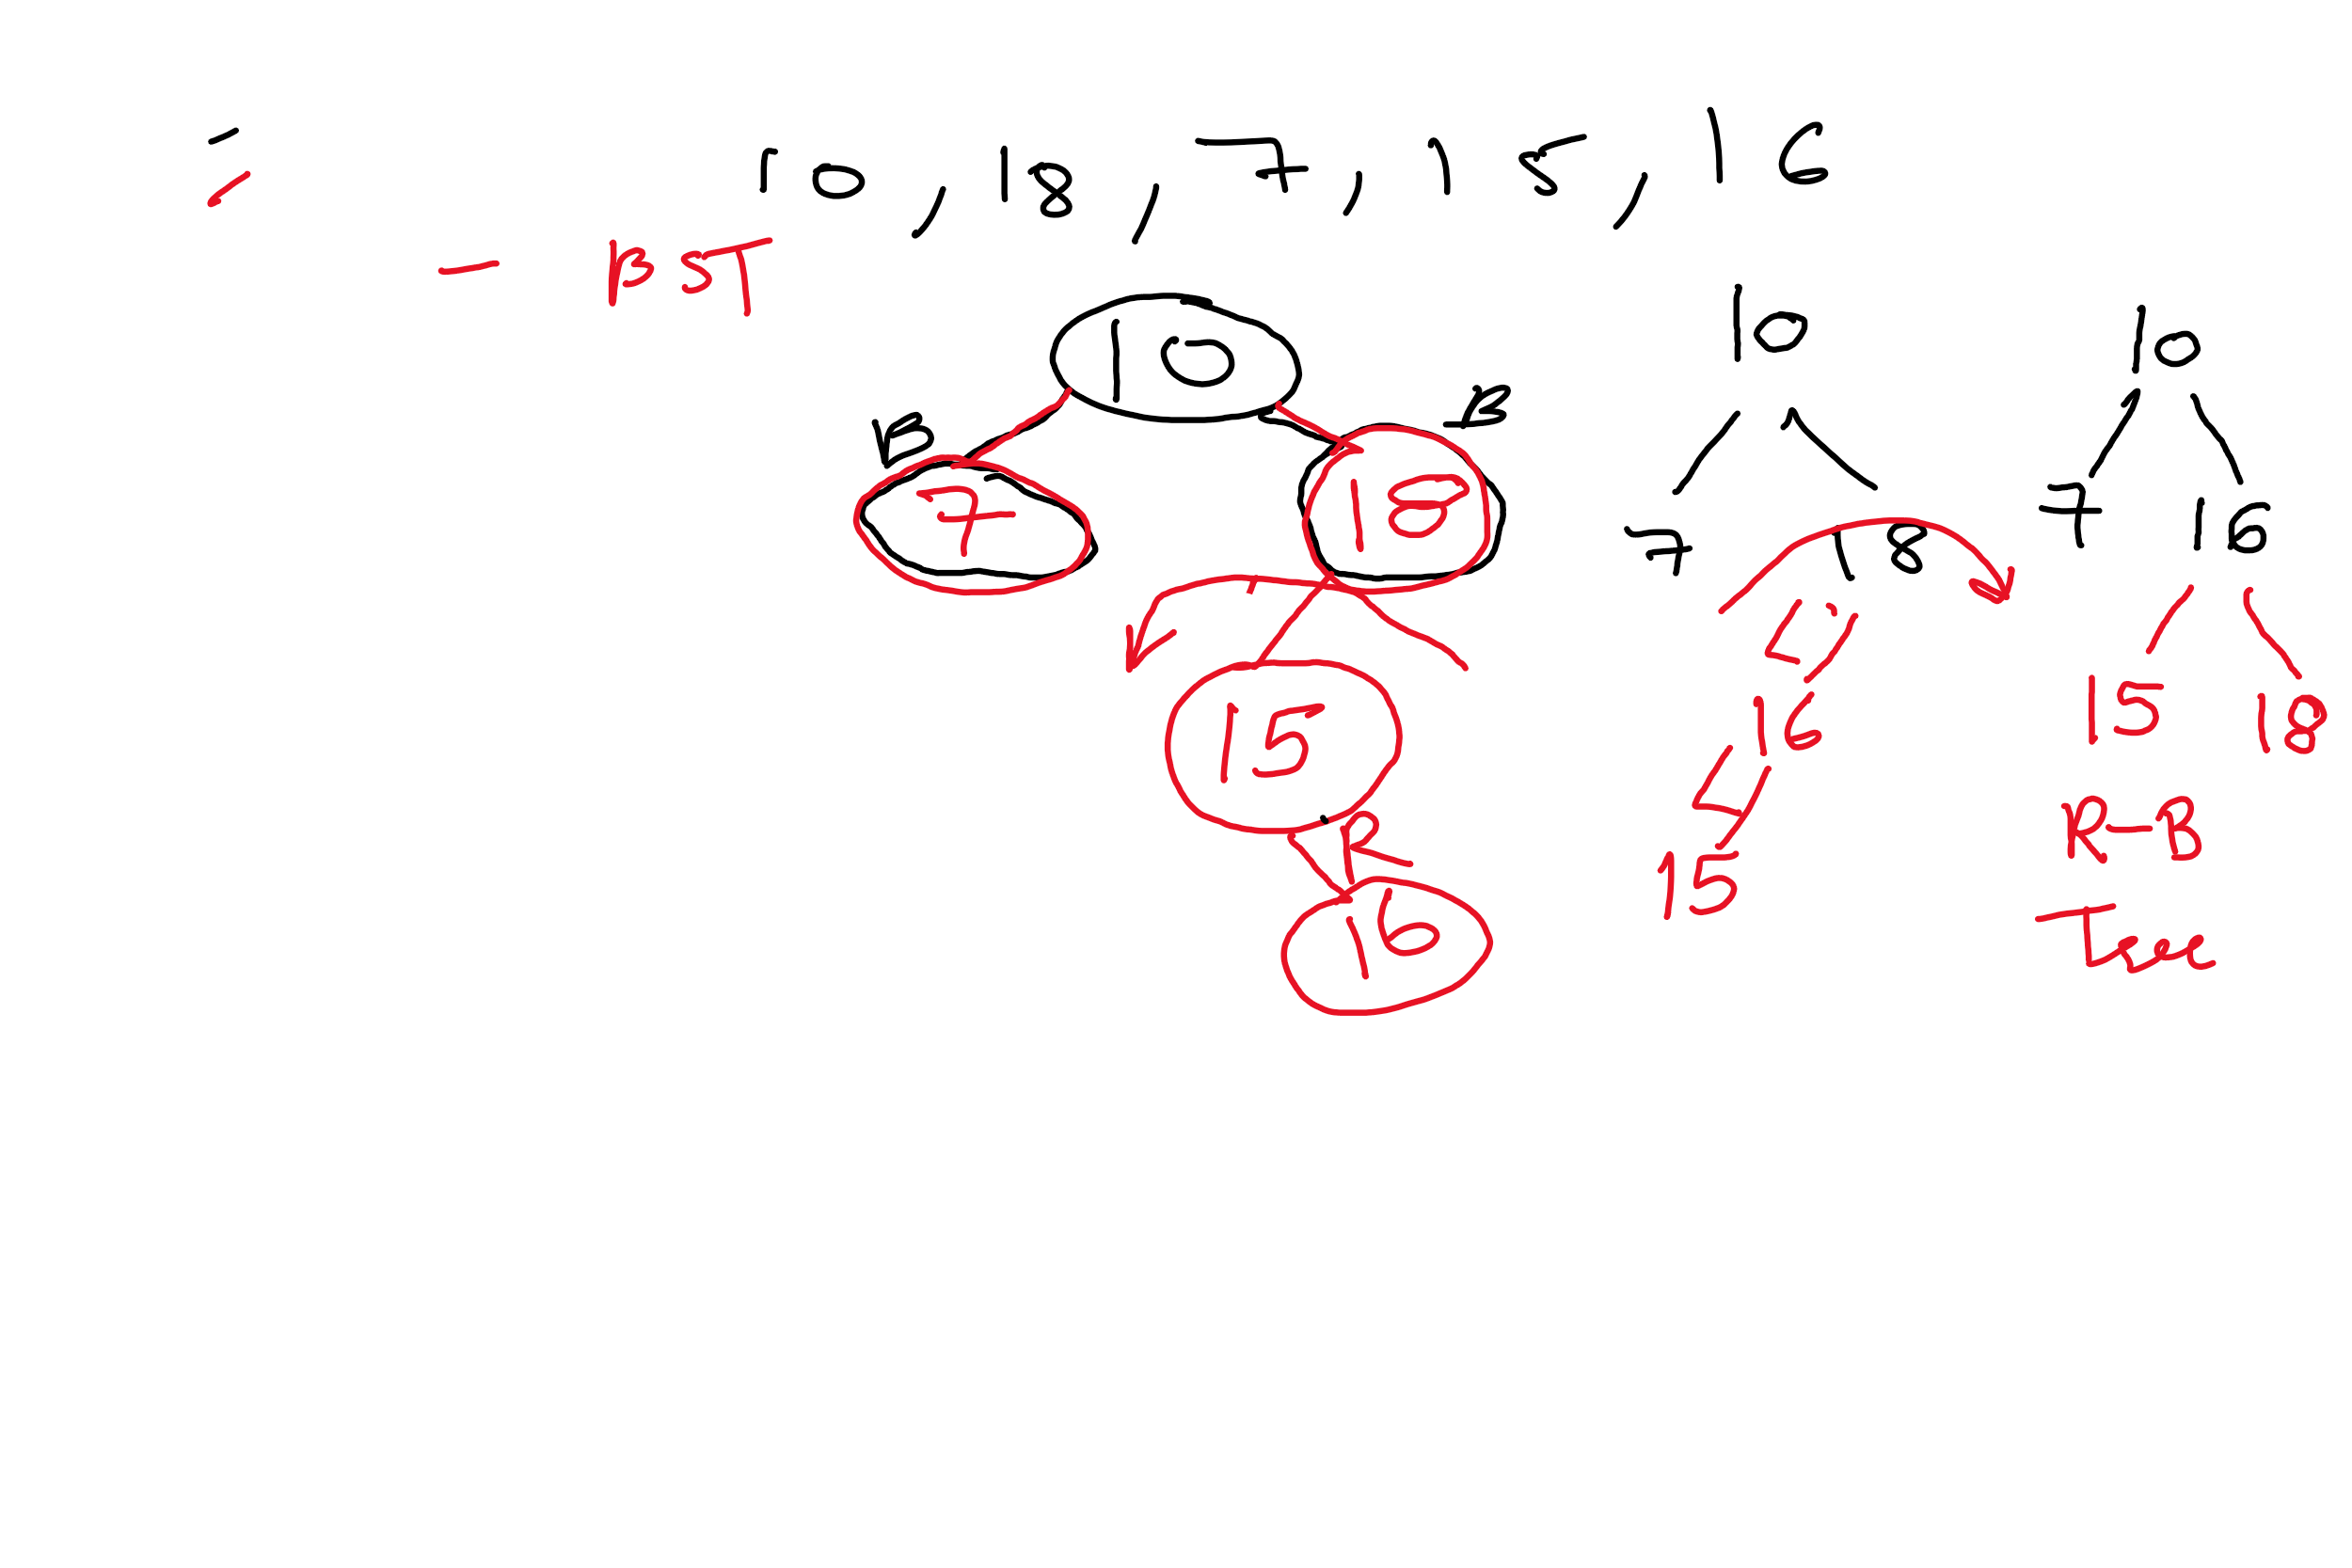 10, 18, 7, 15, 16
- BST
10
B
7
B
18
15
R
16
10
7
18
16
15
10
7
16
15
18
R-B
Tree